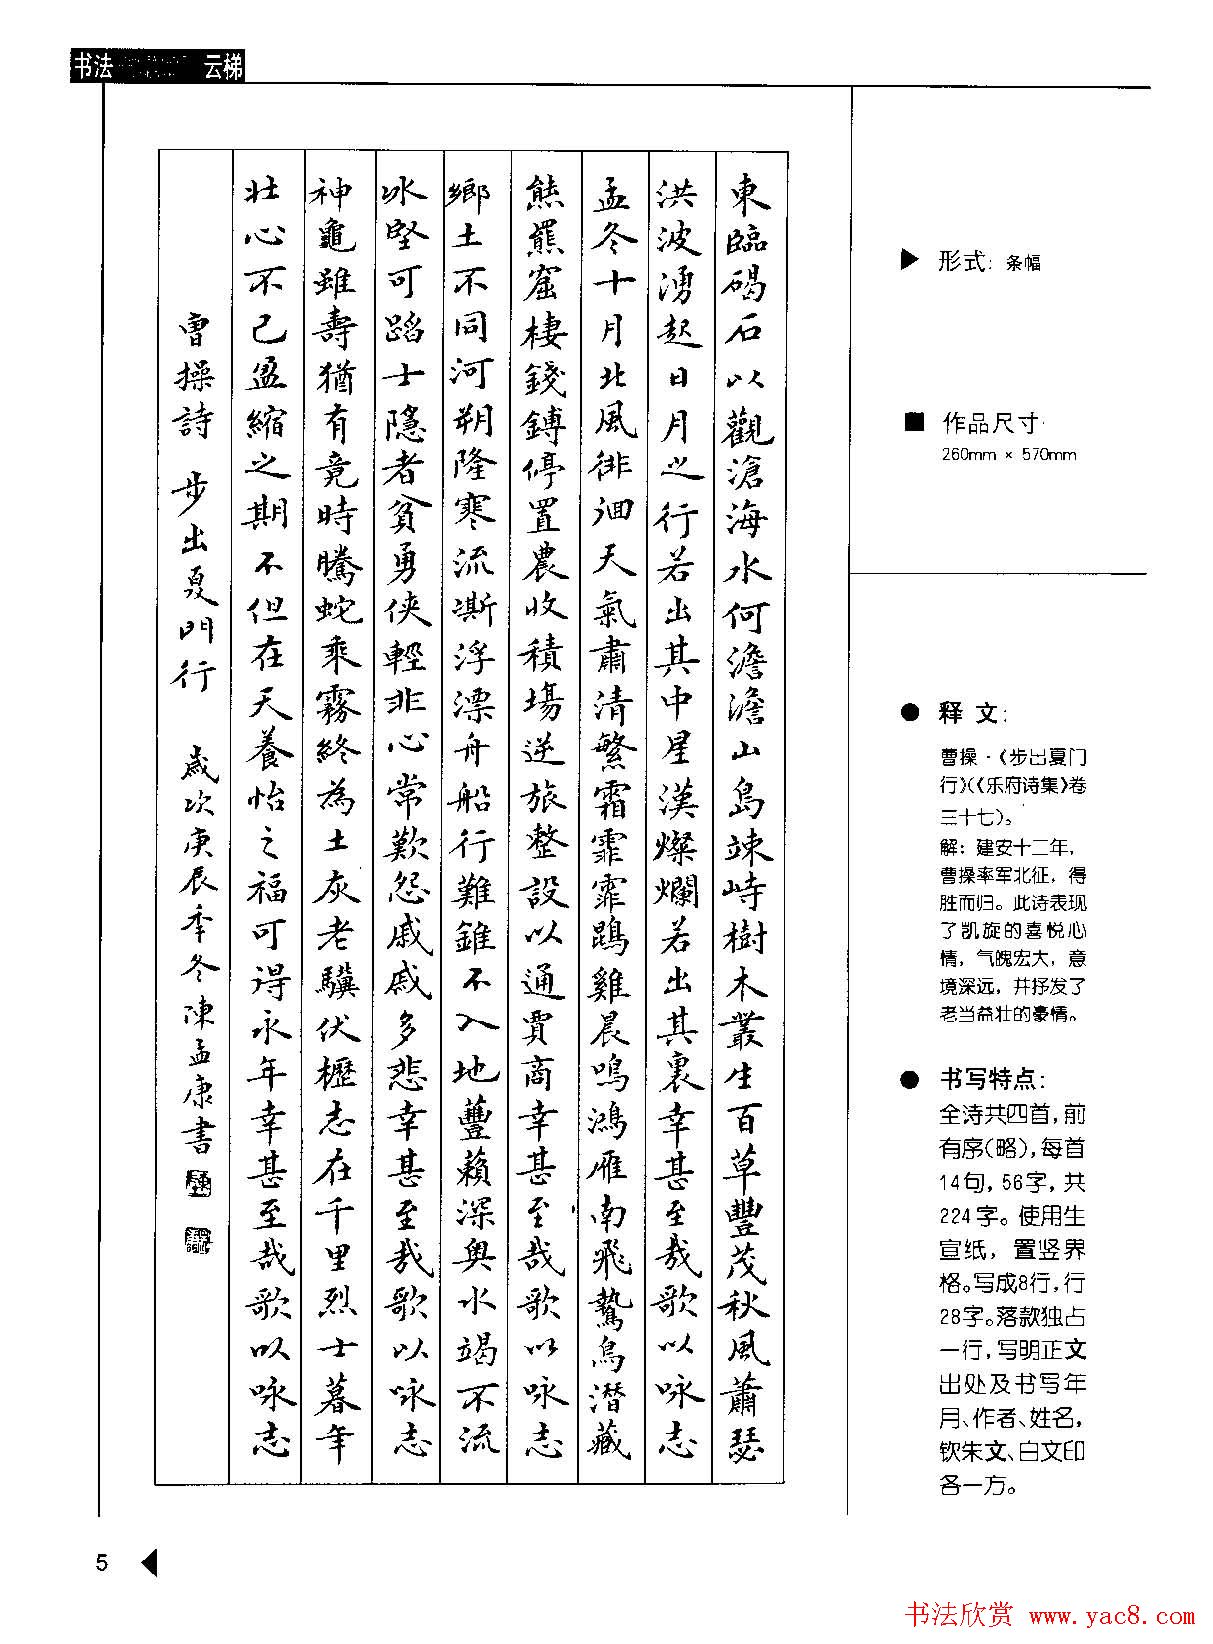 书法
云梯
東臨碣石以觀滄海水何澹澹山島竦峙樹木叢生百草豐茂秋風蕭瑟
洪波湧起日月之行若出其中星漢燦爛若出其裏幸甚至哉歌以咏志
孟冬十月北風徘徊天氣肅清繁霜霏霏鵾雞晨鳴鴻雁南飛鷙鳥潛藏
熊羆窟棲錢鎛停置農收積場逆旅整設以通賈商幸甚至哉歌以咏志
鄉土不同河朔隆寒流澌浮漂舟船行難錐不入地蘴藾深奧水竭不流
冰堅可蹈士隱者貧勇俠輕非心常歎怨戚戚多悲幸甚至哉歌以咏志
神龜雖壽猶有竟時騰蛇乘霧終為土灰老驥伏櫪志在千里烈士暮年
壯心不已盈縮之期不但在天養怡之福可得永年幸甚至哉歌以咏志
曹操詩 步出夏門行 歲次庚辰季冬陳孟康書
▶ 形式: 条幅
■ 作品尺寸·
260mm × 570mm
● 释 文:
曹操·《步出夏门
行》(《乐府诗集》卷
三十七)。
解: 建安十二年,
曹操率军北征, 得
胜而归。此诗表现
了凯旋的喜悦心
情, 气魄宏大, 意
境深远, 并抒发了
老当益壮的豪情。
● 书写特点:
全诗共四首, 前
有序(略), 每首
14句, 56字, 共
224字。使用生
宣纸, 置竖界
格。写成8行, 行
28字。落款独占
一行, 写明正文
出处及书写年
月、作者、姓名,
钦朱文、白文印
各一方。
5
书法欣赏 www.yac8.com